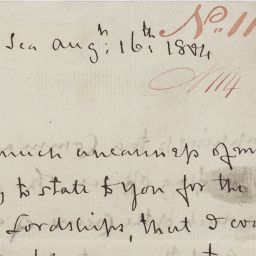 No. 11
Sea Augh: 16th. 1804
N 114
much uneasiness of m
to state to You for the
Lordships, that I